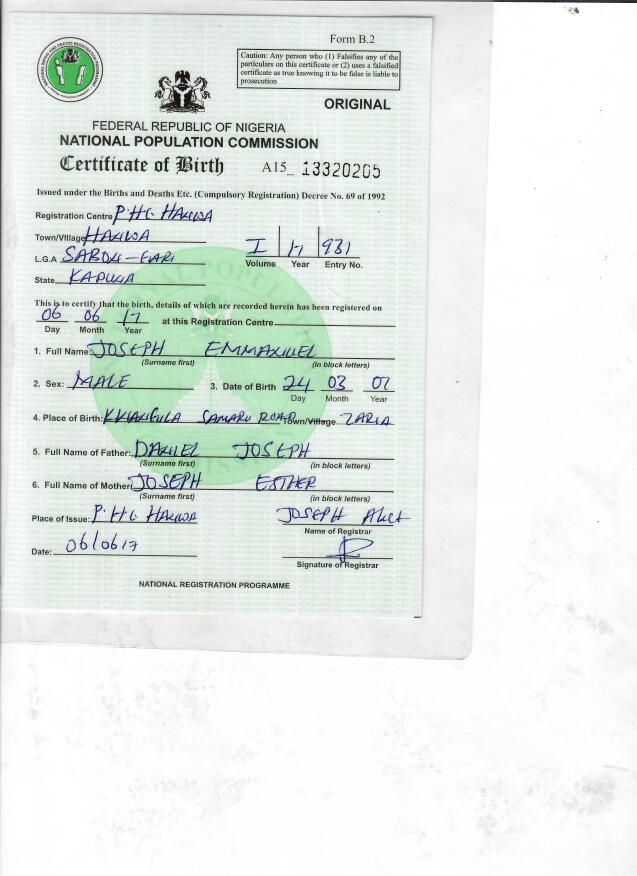 Form B.2
Caution: Any person who (1) Falsifies any of the
particulars on this certificate or (2) uses a falsified
certificate as true knowing it to be false is liable to
prosecution
ORIGINAL
FEDERAL REPUBLIC OF NIGERIA
NATIONAL POPULATION COMMISSION
Certificate of Birth A15_ 13320205
Issued under the Births and Deaths Etc. (Compulsory Registration) Decree No. 69 of 1992
Registration Centre P.H.C HANWA
Town/Village HANWA
L.G.A SABON-GARI I 17 931
Volume Year Entry No.
State KADUNA
This is to certify that the birth, details of which are recorded herein has been registered on
06 06 17 at this Registration Centre
Day Month Year
1. Full Name: JOSEPH EMMANUEL
(Surname first) (in block letters)
2. Sex: MALE 3. Date of Birth 24 03 07
Day Month Year
4. Place of Birth: SAMARU ROAD Town/Village ZARIA
5. Full Name of Father: DANIEL JOSEPH
(Surname first) (in block letters)
6. Full Name of Mother JOSEPH ESTHER
(Surname first) (in block letters)
Place of Issue: P.H.C HANWA JOSEPH
Name of Registrar
Date: 06/06/17
Signature of Registrar
NATIONAL REGISTRATION PROGRAMME